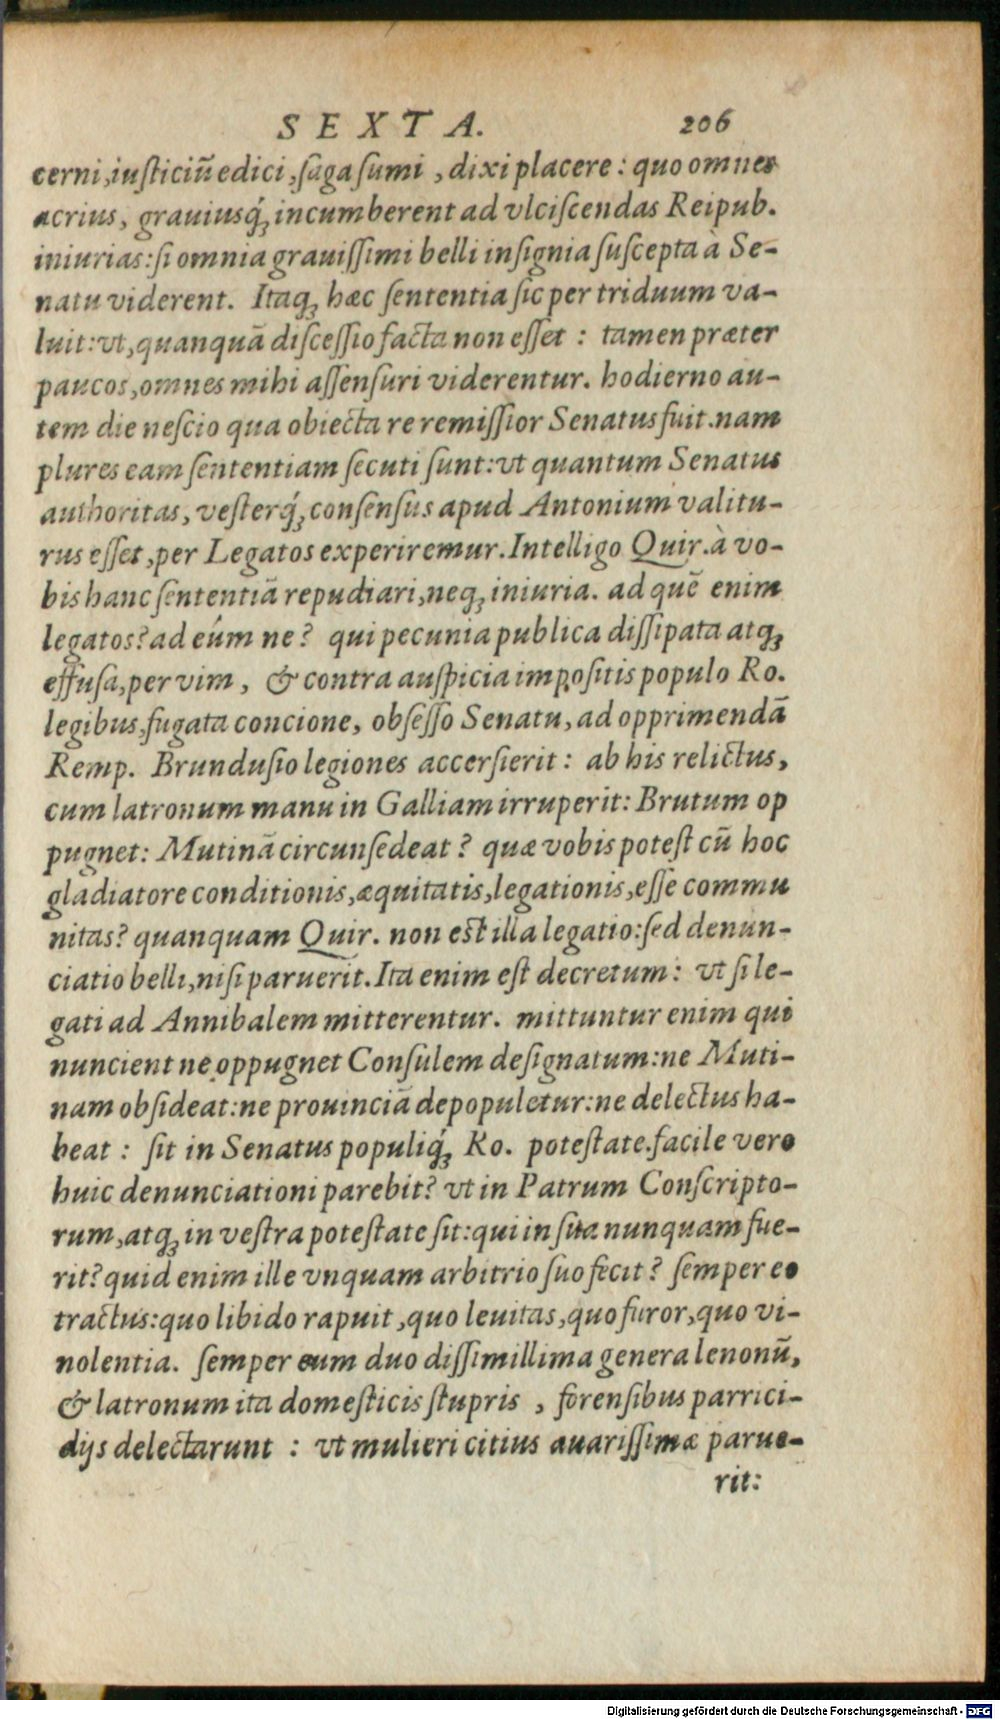 SEXTA. 206
cerni, iusticiũ edici, saga sumi, dixi placere: quo omnes
acrius, grauiusq́ꝫ incumberent ad vlciscendas Reipub.
iniurias: si omnia grauissimi belli insignia suscepta à Se-
natu viderent. Itaqꝫ hæc sententia sic per triduum va-
luit: vt, quanquã discessio facta non esset: tamen præter
paucos, omnes mihi assensuri viderentur. hodierno au-
tem die nescio qua obiecta re remissior Senatus fuit. nam
plures eam sententiam secuti sunt: vt quantum Senatus
authoritas, vesterq́ꝫ consensus apud Antonium valitu-
rus esset, per Legatos experiremur. Intelligo Quir. à vo-
bis hanc sententiã repudiari, neqꝫ iniuria. ad quẽ enim
legatos? ad eúm ne? qui pecunia publica dissipata atqꝫ
effusa, per vim, & contra auspicia impositis populo Ro.
legibus, fugata concione, obsesso Senatu, ad opprimendã
Remp. Brundusio legiones accersierit: ab his relictus,
cum latronum manu in Galliam irruperit: Brutum op
pugnet: Mutinã circunsedeat? quæ vobis potest cũ hoc
gladiatore conditionis, æquitatis, legationis, esse commu
nitas? quanquam Quir. non est illa legatio: sed denun-
ciatio belli, nisi paruerit. Ita enim est decretum: vt si le-
gati ad Annibalem mitterentur. mittuntur enim qui
nuncient ne oppugnet Consulem designatum: ne Muti-
nam obsideat: ne prouinciã depopuletur: ne delectus ha-
beat: sit in Senatus populiq́ꝫ Ro. potestate. facile vero
huic denunciationi parebit? vt in Patrum Conscripto-
rum, atqꝫ in vestra potestate sit: qui in sua nunquam fue-
rit? quid enim ille vnquam arbitrio suo fecit? semper eo
tractus: quo libido rapuit, quo leuitas, quo furor, quo vi-
nolentia. semper eum duo dissimillima genera lenonũ,
& latronum ita domesticis stupris, forensibus parrici-
dijs delectarunt: vt mulieri citius auarissimæ parue-
rit:
Digitalisierung gefördert durch die Deutsche Forschungsgemeinschaft - DFG